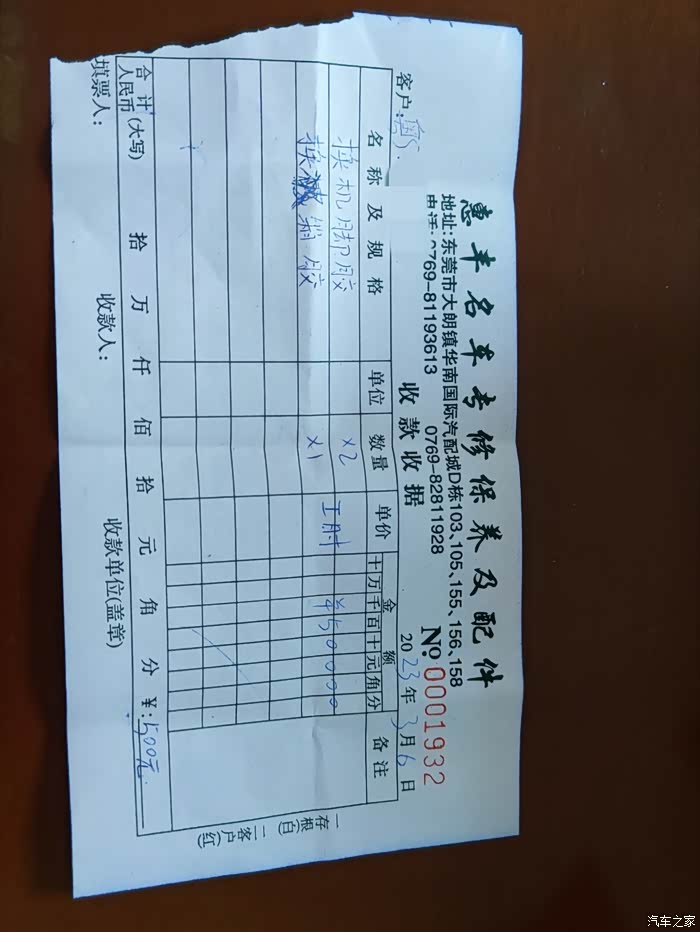 惠丰名车专修保养及配件
地址:东莞市大朗镇华南国际汽配城D栋103、105、155、156、158
0769-81193613 0769-82811928
收款收据 No. 0001932
客户: 2023年3月6日
名称及规格 单位 数量 单价 金额 备注
十万千百十元角分
换机脚胶 x2 工时 ¥50000
换 胶 x1
合计人民币(大写) 拾 万 仟 佰 拾 元 角 分 ¥:500元
填票人: 收款人: 收款单位(盖章)
一存根(白) 二客户(红)
汽车之家